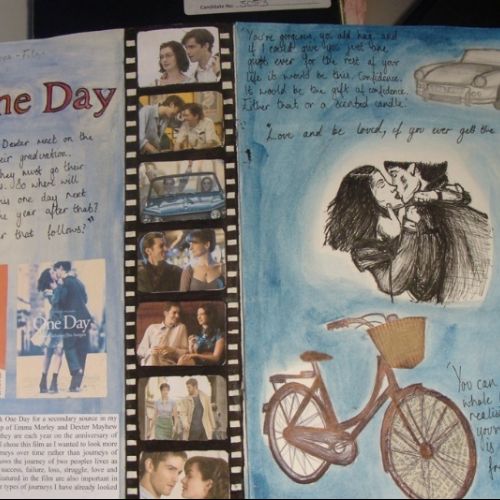 Candidate No.
One Day
Dexter meet on the
their graduation.
they must go their
So where will
this one day next
the year after that?
that follows?"
One Day
One Day for a secondary source in my
p of Emma Morley and Dexter Mayhew
they are each year on the anniversary of
I chose this film as I wanted to look more
journeys over time rather than journeys of
shows the journey of two peoples lives as
success, failure, loss, struggle, love and
featured in the film are also important in
types of journeys I have already looked
You're gorgeous, you old hag, and
if I could give you just one
gift ever for the rest of your
life it would be this. Confidence.
It would be the gift of confidence.
Either that or a scented candle.
"Love and be loved, if you ever get the
"You can
whole
realis
your
is
fo